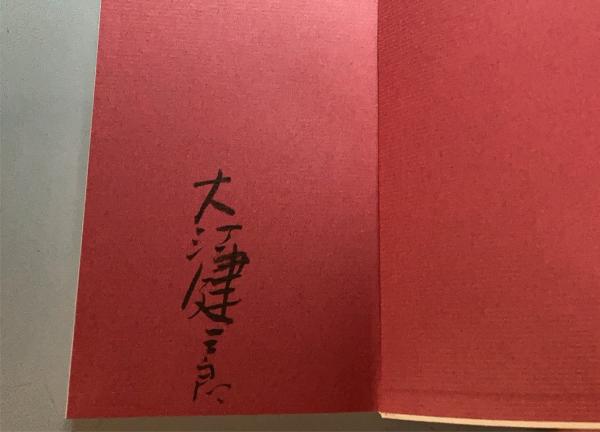 大江健三郎